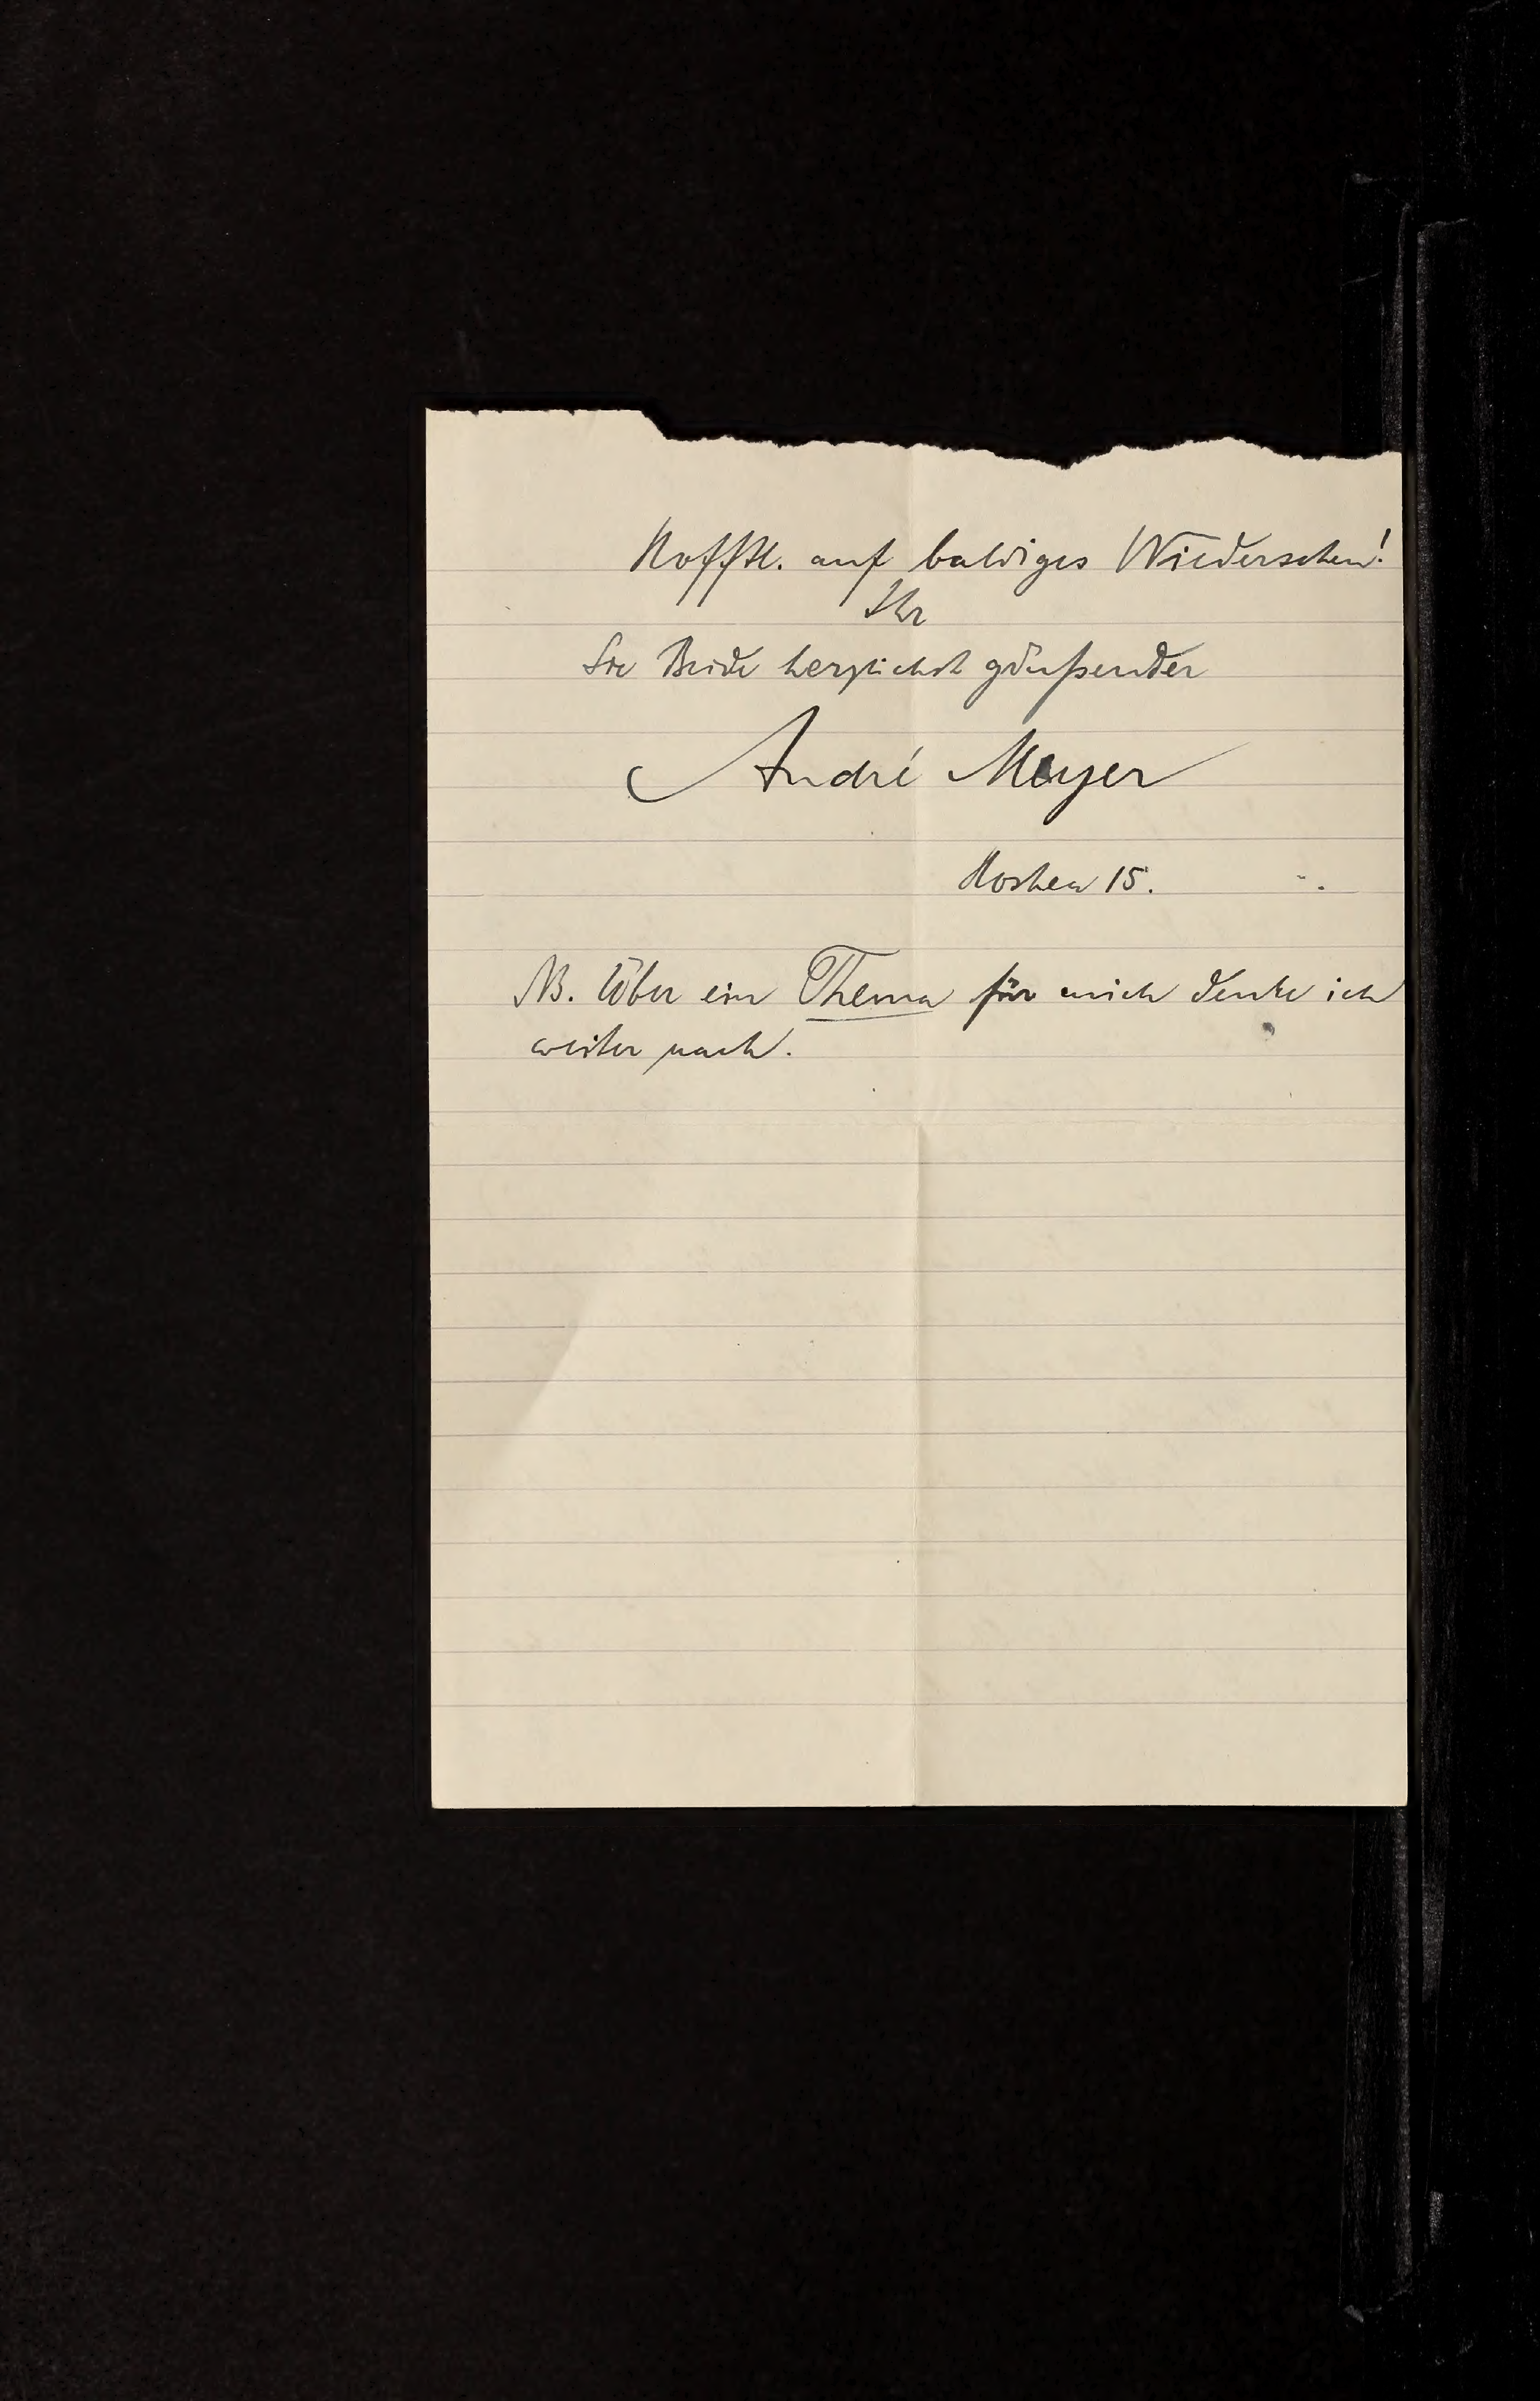 Hofftl. auf baldiges Wiedersehen!
Ihr
Sie Beide herzlichst grüßender
André Meyer
15.
NB. Über ein Thema für mich denke ich
weiter nach.